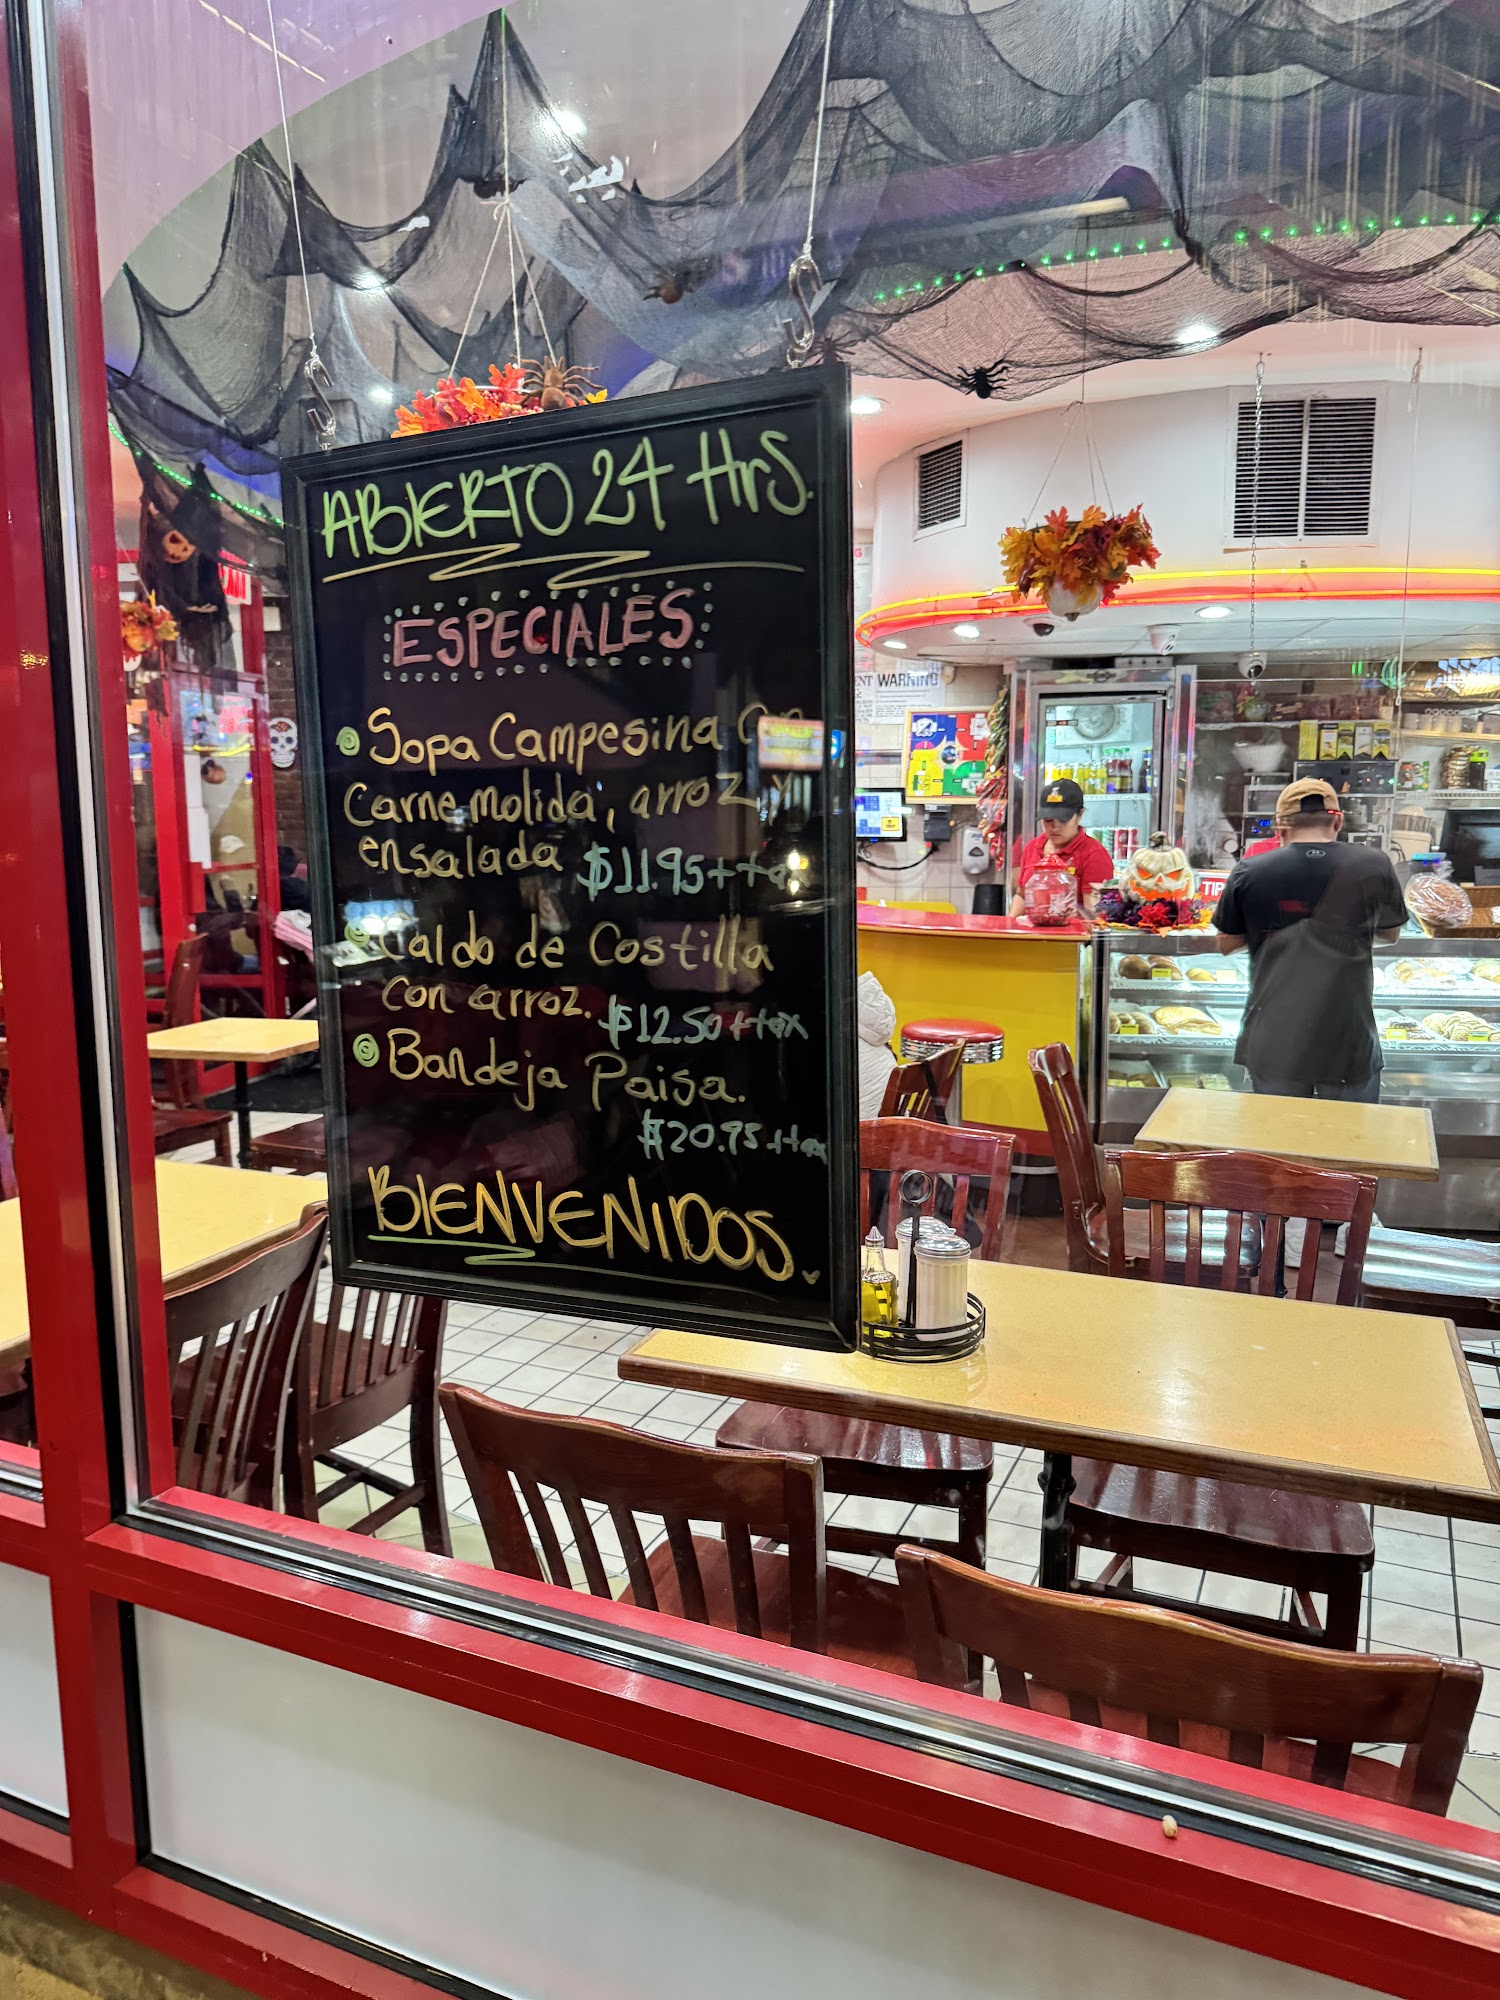 ABIERTO 24 Hrs.
ESPECIALES
Sopa Campesina
Carne molida, arroz y
ensalada $11.95+tax
Caldo de Costilla
con arroz. $12.50+tax
Bandeja Paisa.
$20.95+tax
BIENVENIDOS.
WARNING
TIP